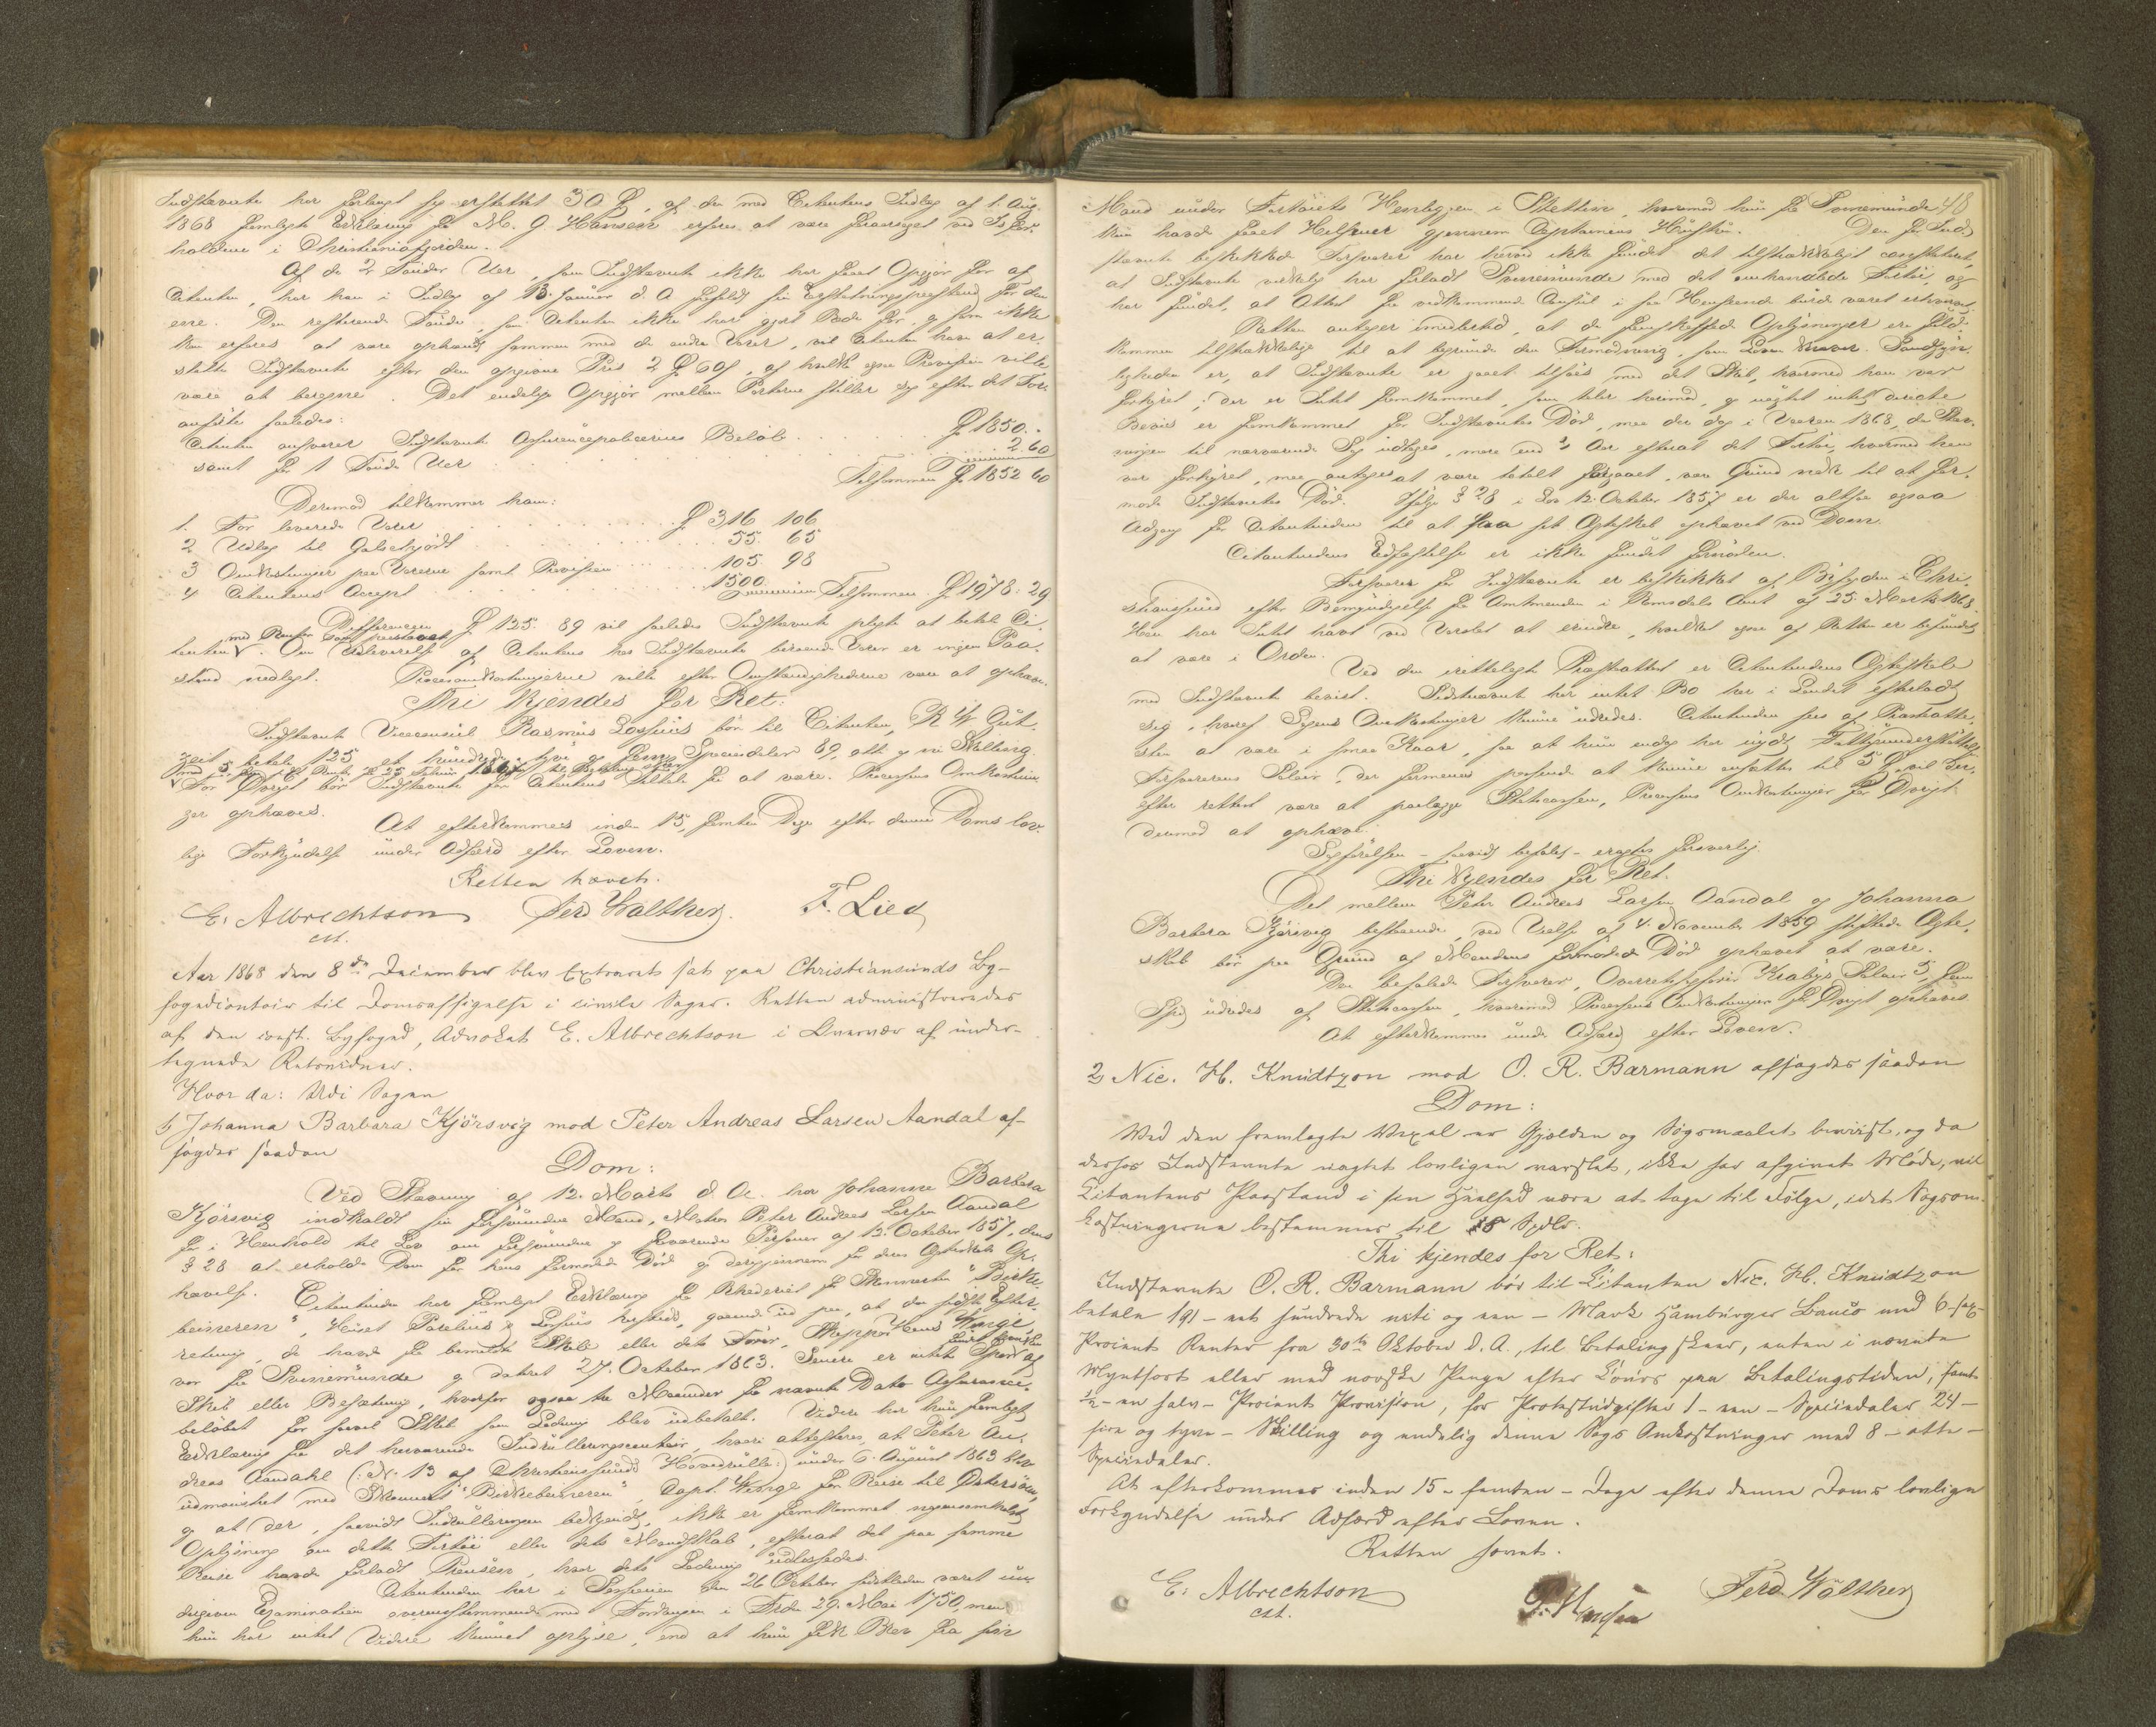 Indstævnte har forlangt sig erstattet 30 , af den med Citantens Indlæg af 1. Aug.
1868 fremlagte Erklæring fra M. G. Hansen erfares at være
holdene i Christianiafjorden.
Af de 2 Tønder Uer, som Indstævnte ikke har faaet Opgjør for af
Citanten, har han i Indlæg af 13. Januar d. A. frafaldt sin Erstatningspaastand for den
ene. Den resterende Tønde, som Citanten ikke har gjort Rede for, og som ikke
kan erfares at være ophandlet sammen med de andre Varer, vil Citanten have at er-
statte Indstævnte efter den opgivne Pris 2 60, af hvilke egen Provision vilde
være at beregne. Det endelige Opgjør mellem Parterne stiller sig efter det Foran-
anførte saaledes:
Citanten ansvarer Indstævnte Assurancepolicernes Beløb . . . 1850. "
samt for 1 Tønde Uer . . . 2. 60
Tilsammen 1852 60
Derimod tilkommer ham:
1. For leverede Varer . . . 316 106
2 Udlæg til . . . 55. 65
3 Omkostninger paa Varerne samt Provision . . . 105. 98
4 Citantens Accept . . . 1500. Tilsammen 1978: 29
Differencen 125. 89 vil saaledes Indstævnte pligte at betale Ci-
tanten med Renter som paastaaet. Om Udleverelse af Citantens hos Indstævnte beroende Varer er ingen Paa-
stand nedlagt. Procesomkostningerne ville efter Omstændighederne være at ophæve.
Thi kjendes for Ret:
Indstævnte Viceconsul Rasmus Lossius bør til Citanten, R. W.
betale 125 et hundrede tyve og fem Speciedaler 89, otti og ni Skilling
med 5, fem pCt. Rente fra 27 Februar 1867 til Betaling skeer
For Øvrigt bør Indstævnte for Citantens Tiltale fri at være. Processens Omkostnin-
ger ophæves.
At efterkommes inden 15, femten Dage efter denne Doms lov-
lige Forkyndelse under Adfærd efter Loven.
Retten hævet.
E. Albrechtson Ferd Walther. F. Lied
cst.
Aar 1868 den 8de December blev Extraret sat paa Christiansunds By-
fogedcontoir til Domsafsigelse i civile Sager. Retten administreredes
af den const. Byfoged, Advokat E. Albrechtson i Overvær af under-
tegnede Retsvidner.
Hvor da: Udi Sagen
1, Johanna Barbara Kjörsvig mod Peter Andreas Larsen Aandal af-
sagdes saadan
Dom:
Ved Stævning af 12. Marts d. A. har Johanne Barbara
Kjörsvig indkaldt sin forsvundne Mand, Matros Peter Andreas Larsen Aandal
for i Henhold til Lov om forsvundne og fraværende Personer af 12. October 1857, dens
§ 28 at erholde Dom for hans formodede Död og derigjennem for deres Ægteskabs Op-
hævelse. Citantinden har fremlagt Erklæring fra Rhederiet for Skonnerten "Birke-
beineren", Huset Parelius & Lossius herfra, gaaende ud paa, at den sidste Efter-
retning, de havde fra bemeldte Skib eller dets Fører, Skipper Hans Winge
var fra Svinemünde og dateret 27. October 1863. Senere er intet Spor fundet hverken af
Skib eller Besætning, hvorfor ogsaa tre Maaneder fra nævnte Dato Assurance-
beløbet for saavel Skib som Ladning blev udbetalt. Videre har hun fremlagt
Erklæring fra det herværende Indrulleringscontoir, hvori attesteres, at Peter An-
dreas Aandahl (: N. 13 af Christianssunds Hovedrulle:) under 6. August 1863 blev
udmønstret med Skonnert "Birkebeineren", Capt. Winge for Reise til Østersøen,
og at der, saavidt Indrulleringen bekjendt, ikke er fremkommet nogensomhelst
Oplysning om dette Fartøi eller dets Mandskab, efterat det paa samme
Reise havde forladt Preusen, hvor dets Ladning udlossedes.
Citantinden har i Sessionen den 26 October sidstleden været un-
dergiven Examination overensstemmende med Forordningen i Frdn 29. Mai 1750, men
hun har intet Videre kunnet oplyse, end at hun fik Brev fra sin
48
Mand under Fartøiets Henliggen i Stettin, hvorimod hun fra Svinemünde
kun havde faaet Helsener gjennem Captainens Hustru. Den for Ind-
stævnte beskikkede Forsvarer har herved ikke fundet det tilstrækkeligt constateret,
at Indstævnte virkelig har forladt Svinemünde med det omhandlede Fartøi, og
har fundet, at Attest fra vedkommende Consul i saa Henseende burde været erhvervet.
Retten antager imidlertid, at de fremskaffede Oplysninger ere fuld-
kommen tilstrækkelige til at begrunde den Formodning, som Loven kræver. Sandsyn-
ligheden er, at Indstævnte er gaaet tilsøes med det Skib, hvormed han var
forhyret; der er Intet fremkommet, som taler herimod, og uagtet intet directe
Bevis er fremkommet for Indstævntes Död, maa der dog i Vaaren 1868, da Stæv-
ningen til nærværende Sag udtages, mere end 4 Aar efterat det Fartøi, hvormed han
var forhyret, maa antages at være totalt forgaaet, være Grund nok til at for-
mode Indstævntes Död. Ifølge § 28 i Lov 12. October 1857 er der altsaa ogsaa
Adgang for Citantinden til at faa sit Ægteskab ophævet ved Dom.
Citantindens Edfæstelse er ikke fundet fornøden.
Forsvarer for Indstævnte er beskikket af Byfogden i Chri-
stianssund efter Bemyndigelse fra Amtmanden i Romsdals Amt af 25. Marts 1868.
Han har Intet havt ved Varslet at erindre, hvilket ogsaa af Retten er befundet
at være i Orden.
Ved den irettelagte Præsteattest er Citantindens Ægteskab
med Indstævnte bevist. Indstævnte har intet Bo her i Landet efterladt
sig, hvoraf Sagens Omkostninger kunne udredes. Citantinden sees af Præsteatte-
sten at være i smaa Kaar, saa at hun endog har nydt Fattigunderstøttelse.
Forsvarerens Salair, der formenes passende at kunne ansættes til 5, vil der-
efter rettest være at paalægge Statscassen, Processens Omkostninger for Øvrigt
derimod at ophæve.
Sagførelsen – saavidt befalet – eragtes forsvarlig.
Thi kjendes for Ret:
Det mellem Peter Andreas Larsen Aandal og Johanna
Barbara Kjörsvig bestaaende, ved Vielse af 4. November 1859 stiftede Ægte-
skab bör paa Grund af Mandens formodede Död ophævet at være.
Den befalede Forsvarer, Overretssagfører Krabys Salair 5, fem
Spd, udredes af Statscassen, hvorimod Processens Omkostninger for Øvrigt ophæves
At efterkommes under Adfærd efter Loven.
2, Nic. H. Knudtzon mod O. R. Barmann afsagdes saadan
Dom:
Ved den fremlagte Vexel er Gjælden og Søgsmaalet beviist, og da
derhos Indstævnte uagtet lovligen varslet, ikke har afgivet Møde, vil
Citantens Paastand i sin Heelhed være at tage til Følge, idet Søgsom-
kostningerne bestemmes til 8 Spdlr.
Thi kjendes for Ret:
Indstævnte O. R. Barmann bör til Citanten Nic. H. Knudtzon
betale 191 – eet hundrede niti og een – Mark Hamburger Banco med 6 – sex
Procent Renter fra 30te Oktober d. A., til Betaling skeer, enten i nævnte
Myntsort eller med norske Penge efter Cours paa Betalingstiden, samt
½ – en halv – Procent Provision, for Protestudgifter 1 – een – Speciedaler 24 –
fire og tyve – Skilling og endelig denne Sags Omkostninger med 8 – otte –
Speciedaler.
At efterkommes inden 15 – femten – Dage efter denne Doms lovlige
Forkyndelse under Adfærd efter Loven.
Retten hævet.
E. Albrechtson Ferd. Walther
cst.